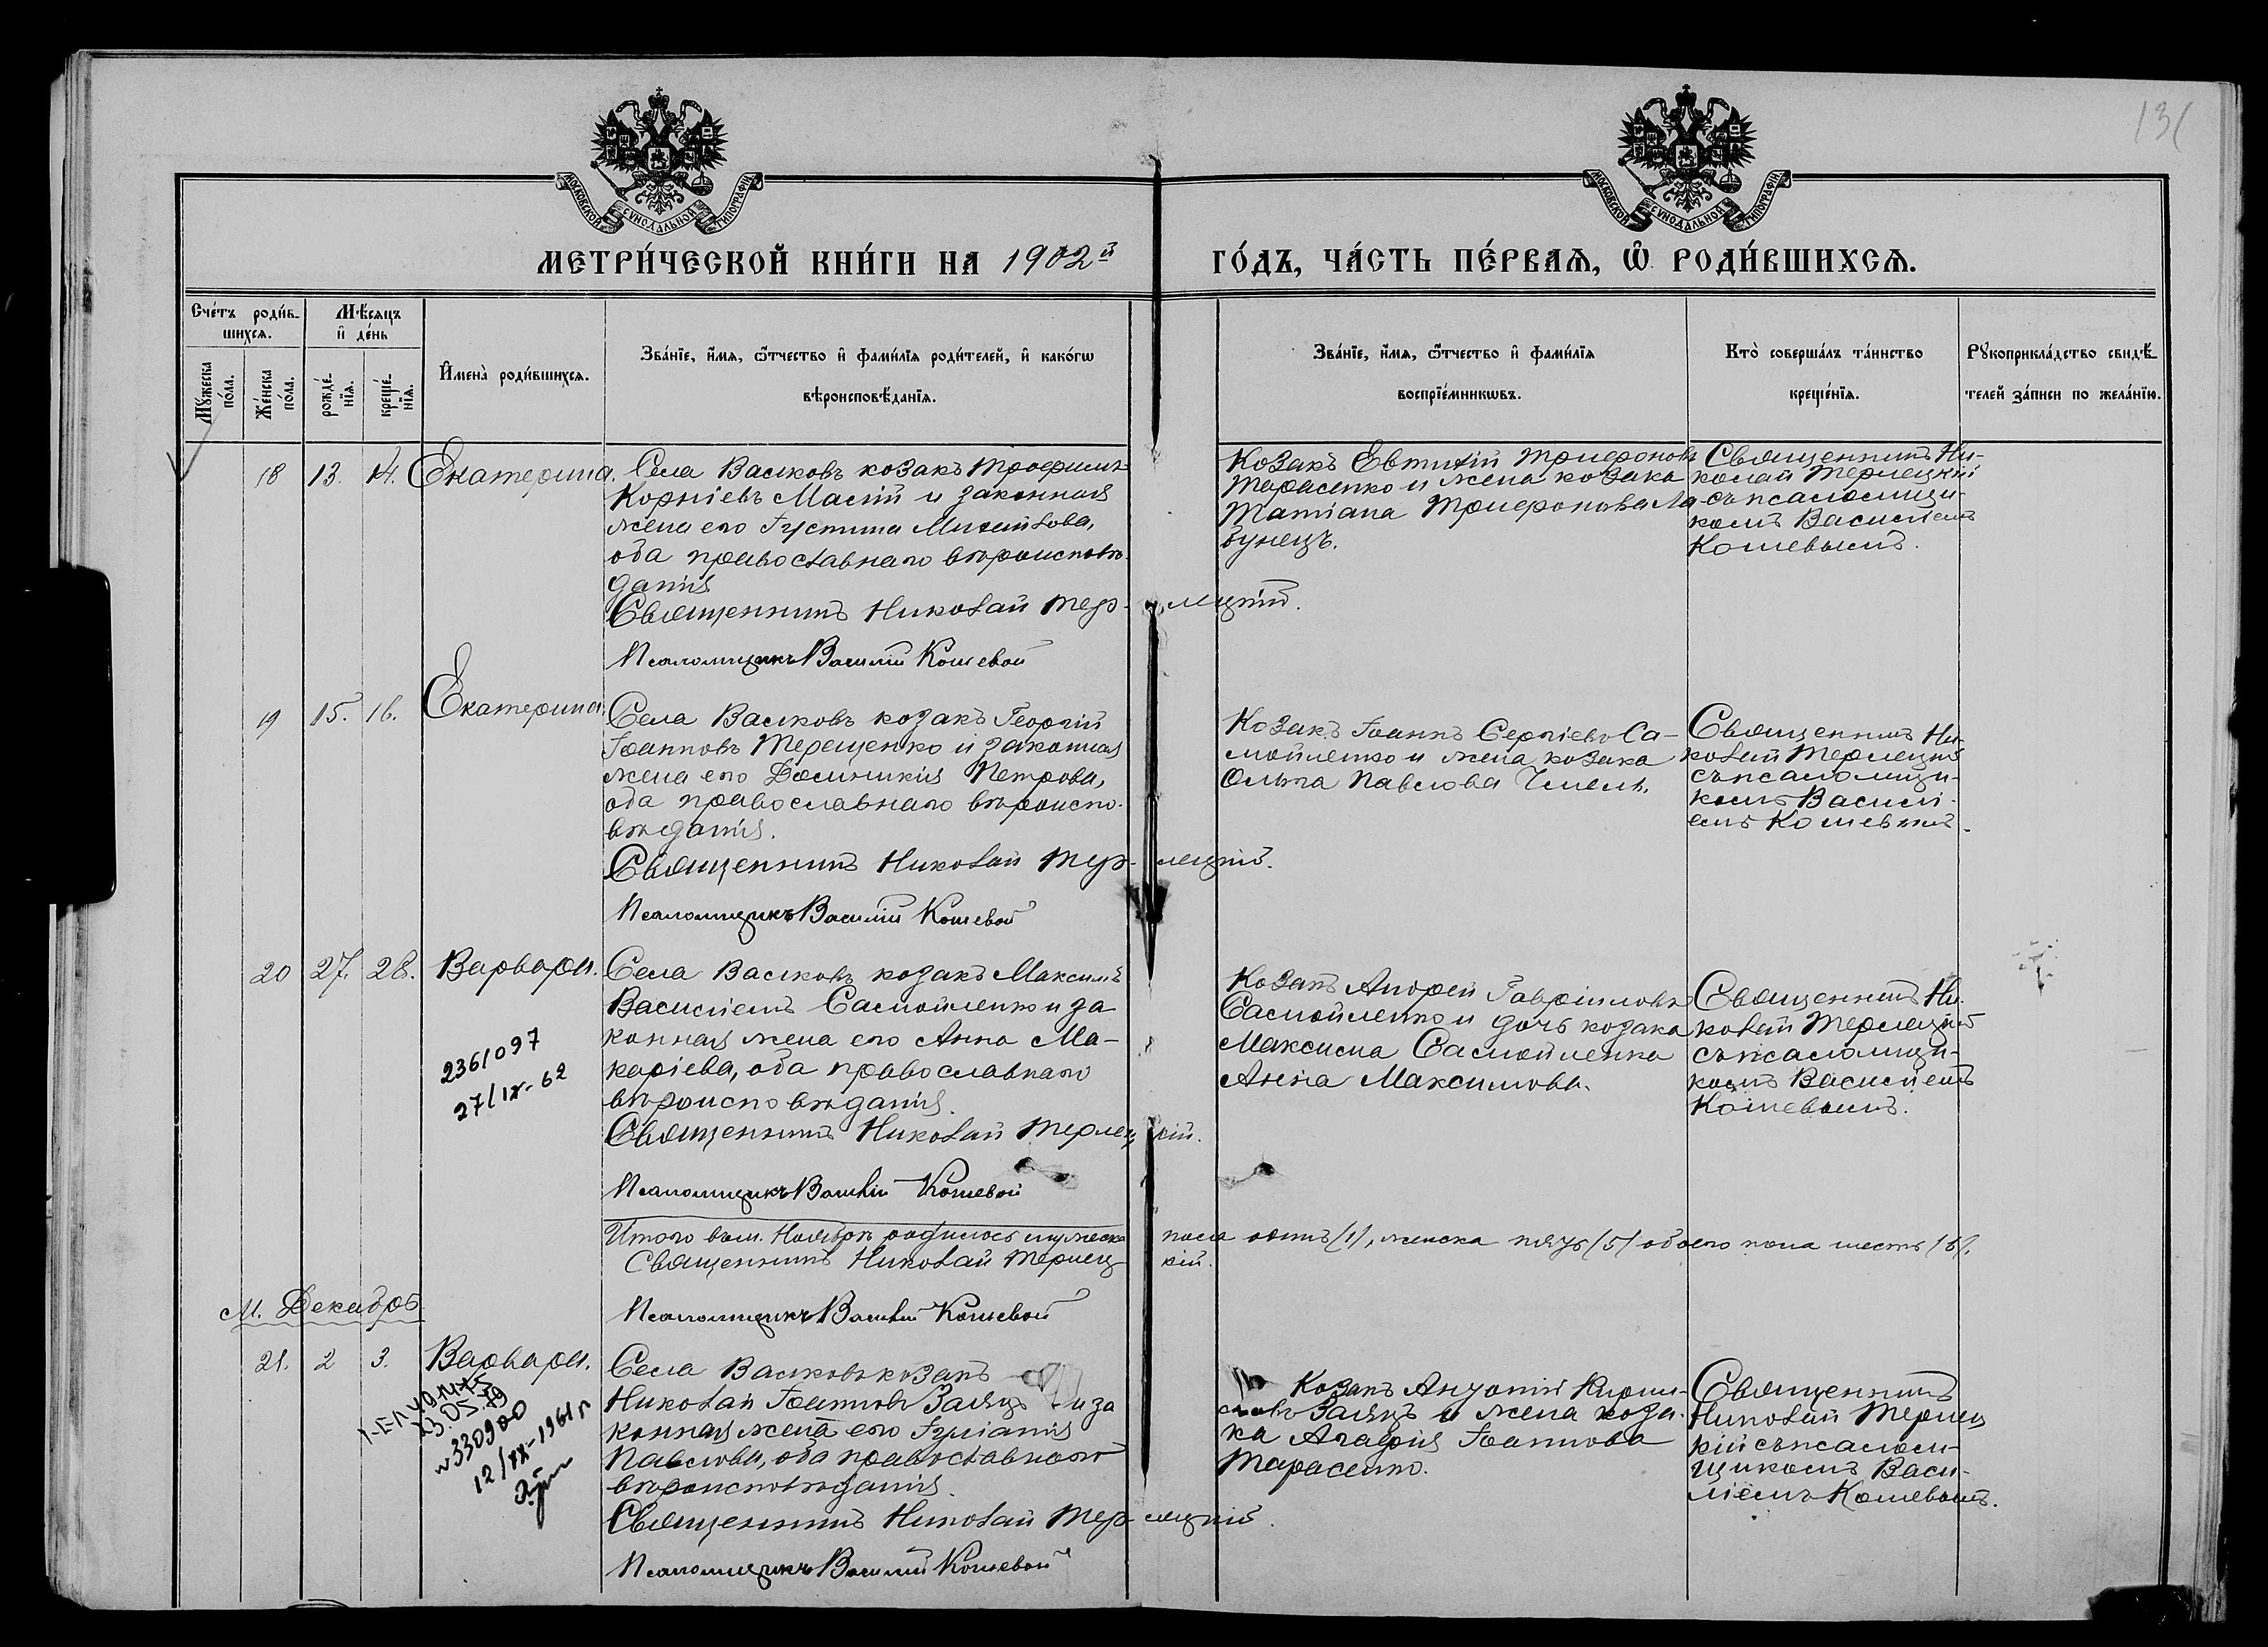 131
МОСКОВСКОЙ СѴНОДАЛЬНОЙ ТИПОГРАФІИ
МОСКОВСКОЙ СѴНОДАЛЬНОЙ ТИПОГРАФІИ
МЕТРИ́ЧЕСКОЙ КНИ́ГИ НА 1902й ГО́ДЪ, ЧА́СТЬ ПЕ́РВАѦ, Ѡ РОДИ́ВШИХСѦ.
Счётъ роди́в-
шихсѧ.
Мꙋ́жеска по́ла.
Же́нска по́ла.
Мѣ́сѧцъ
и҆ де́нь
рожде́-
нїѧ.
креще́-
нїѧ.
И҆мена̀ роди́вшихсѧ.
Зва́нїе, и҆́мѧ, ѻ҆́тчество и҆ фами́лїѧ роди́телей, и҆ како́гѡ
вѣроисповѣ́данїѧ.
Зва́нїе, и҆́мѧ, ѻ҆́тчество и҆ фами́лїѧ
воспрїе́мникѡвъ.
Кто̀ соверша́лъ та́инство
креще́нїѧ.
Рꙋкоприкла́дство свидѣ́-
телей за́писи по жела́нїю.
18 13. 14. Екатерина.
Села Васковъ козакъ Трофимъ
Корніевъ Масій и законная
жена его Іустина Михайлова,
оба православнаго вѣроисповѣ-
данія
Священникъ Николай Тер-лецкій.
Псаломщикъ Василій Кошевой
Козакъ Евтихій Трифоновъ
Тарасенко и жена козака
Татіана Трифонова Ла-
бунецъ.
Священникъ Ни-
колай Терлецкій
съ псаломщи-
комъ Василіемъ
Кошевымъ.
19 15. 16. Екатерина.
Села Васковъ козакъ Георгій
Іоанновъ Терещенко и законная
жена его Домникія Петрова,
оба православнаго вѣроиспо-
вѣданія.
Священникъ Николай Тер-лецкій.
Псаломщикъ Василій Кошевой
Козакъ Іоаннъ Сергіевъ Са-
мойленко и жена козака
Ольга Павлова Чмель.
Священникъ Ни-
колай Терлецкій
съ псаломщи-
комъ Василі-
емъ Кошевымъ.
20 27. 28. Варвара.
2361097
27/IX-62
Села Васковъ козакъ Максимъ
Василіевъ Самойленко и за
конная жена его Анна Ма-
каріева, оба православнаго
вѣроисповѣданія.
Священникъ Николай Терлец кій.
Псаломщикъ Василій Кошевой
Козакъ Андрей Гавріиловъ
Самойленко и дочь козака
Максима Самойленка
Анна Максимова.
Священникъ Ни-
колай Терлецкій
съ псаломщи-
комъ Василіемъ
Кошевымъ.
Итого въ м. Ноябрѣ родилось мужеска пола одинъ (1), женска пять (5) обоего пола шесть (6).
Священникъ Николай Терлец кій.
Псаломщикъ Василій Кошевой
М. Декабрь
21. 2 3. Варвара.
23.05.79
n330900
12/IX-1961 г
Села Васковъ козакъ
Николай Іоанновъ Заяцъ и за
конная жена его Іуліанія
Павлова, оба православнаго
вѣроисповѣданія.
Священникъ Николай Тер-лецкій.
Псаломщикъ Василій Кошевой
Козакъ Антоній Кирил-
ловъ Заяцъ и жена коза-
ка Агафія Іоаннова
Тарасенко.
Священникъ
Николай Терлец
кій съ псалом-
щикомъ Васи-
ліемъ Кошевымъ.